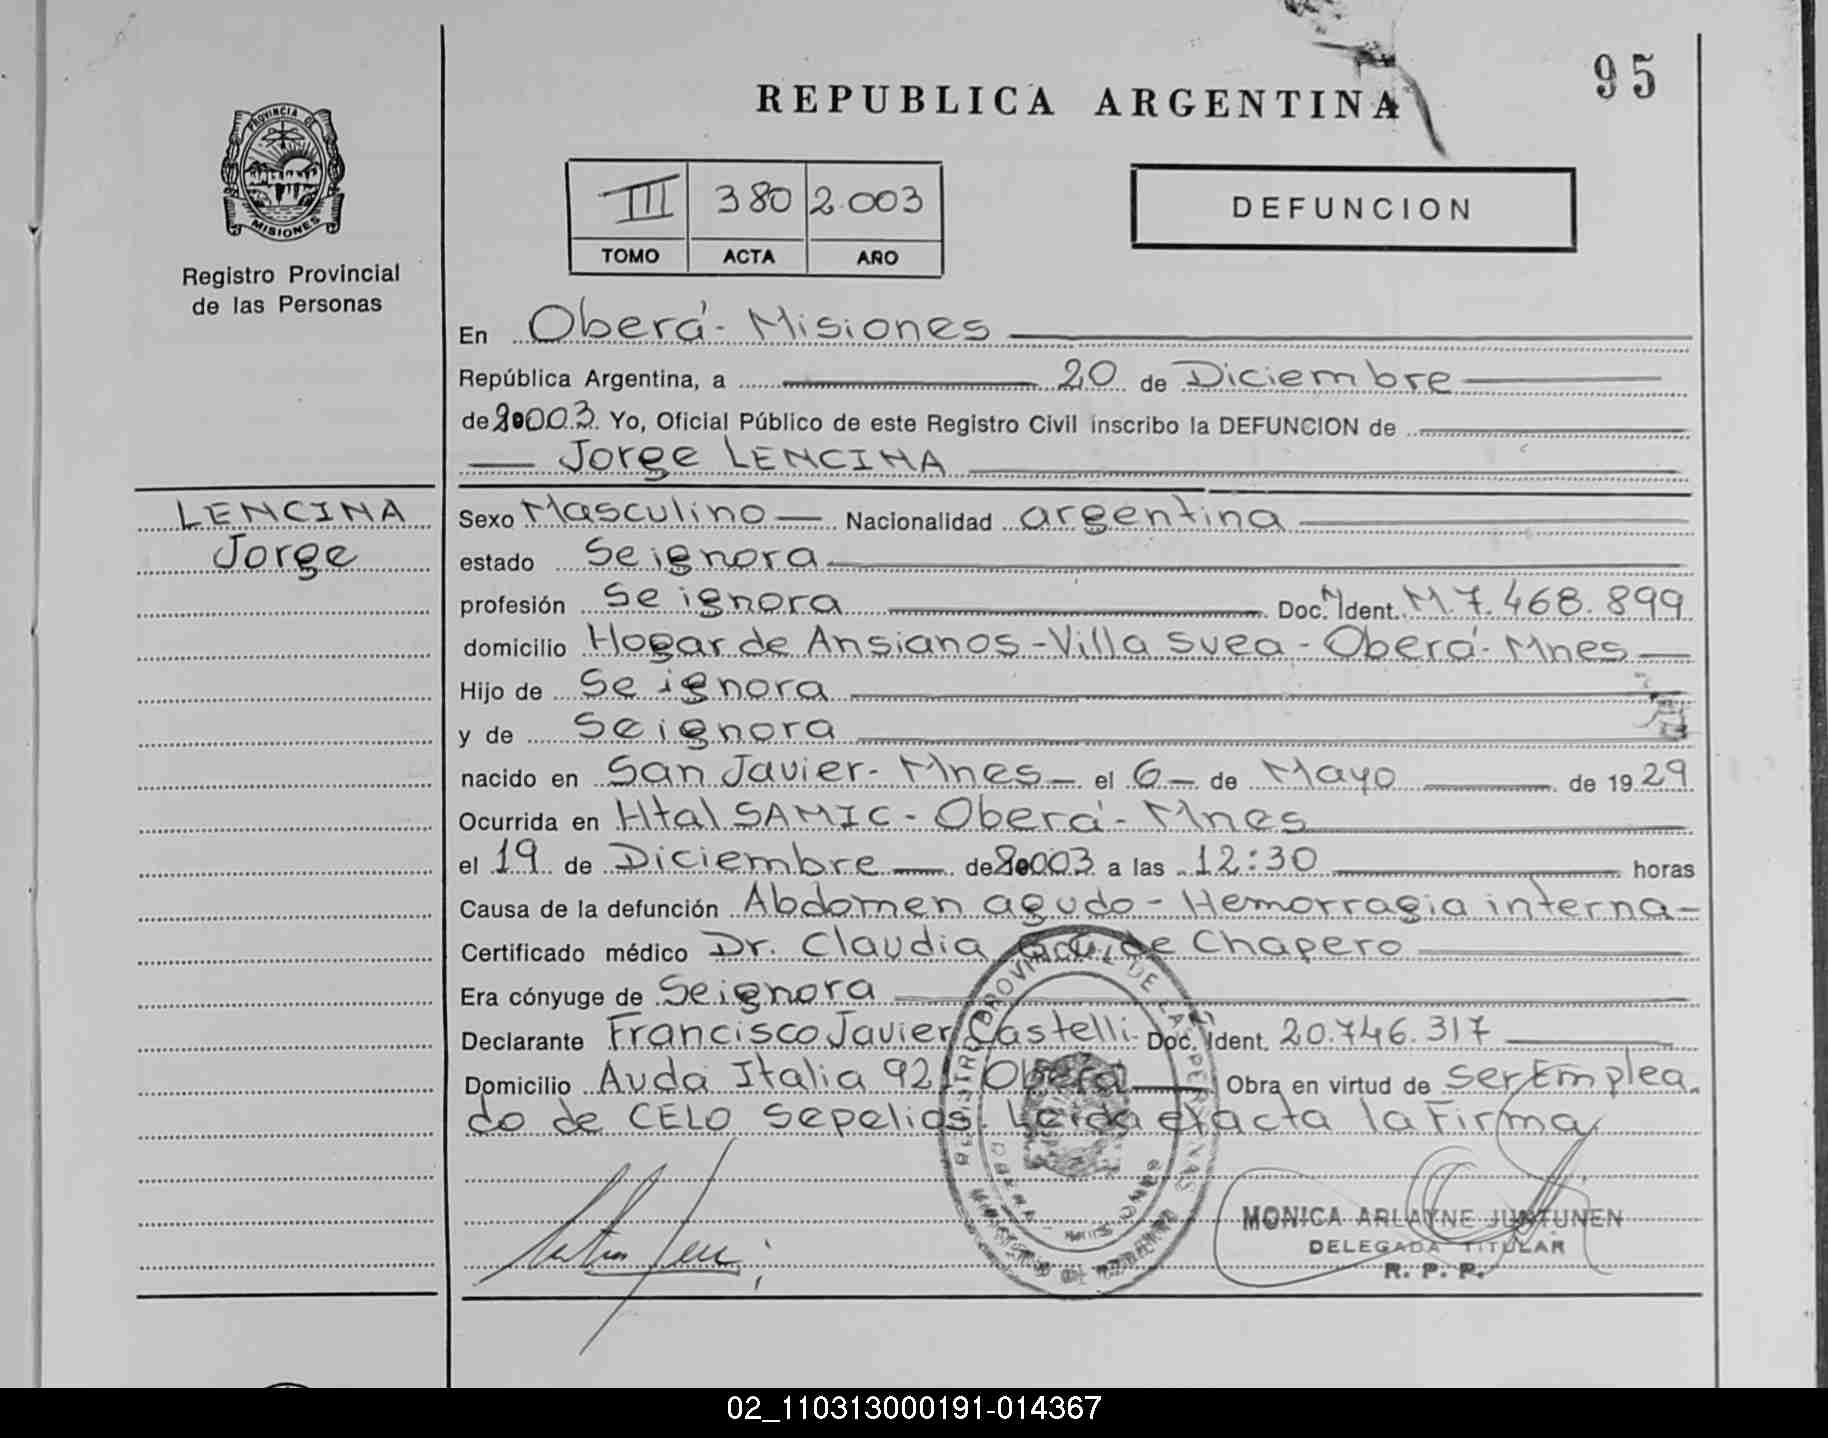 95
REPUBLICA ARGENTINA
PROVINCIA DE
MISIONES
Registro Provincial
de las Personas
III 380 2.003
TOMO ACTA AÑO
DEFUNCION
En Oberá - Misiones
República Argentina, a 20 de Diciembre
de 2003 Yo, Oficial Público de este Registro Civil inscribo la DEFUNCION de
Jorge LENCINA
LENCINA
Jorge
Sexo Masculino Nacionalidad argentina
estado Se ignora
profesión Se ignora Doc. N Ident. M. 7.468.899
domicilio Hogar de Ansianos - Villa Svea - Oberá - Mnes
Hijo de Se ignora
y de Se ignora
nacido en San Javier - Mnes el 6 de Mayo de 1929
Ocurrida en Htal SAMIC - Oberá - Mnes
el 19 de Diciembre de 2003 a las 12:30 horas
Causa de la defunción Abdomen agudo - Hemorragia interna
Certificado médico Dr. Claudia de Chapero
Era cónyuge de Se ignora
Declarante Francisco Javier Castelli Doc. Ident. 20.746.317
Domicilio Avda Italia 92 Oberá Obra en virtud de ser Emplea
do de CELO Sepelios. Leida el acta la Firma
REGISTRO PROVINCIAL DE LAS PERSONAS
MONICA ARLAYNE JUNTUNEN
DELEGADA TITULAR
R. P. P.
02_110313000191-014367